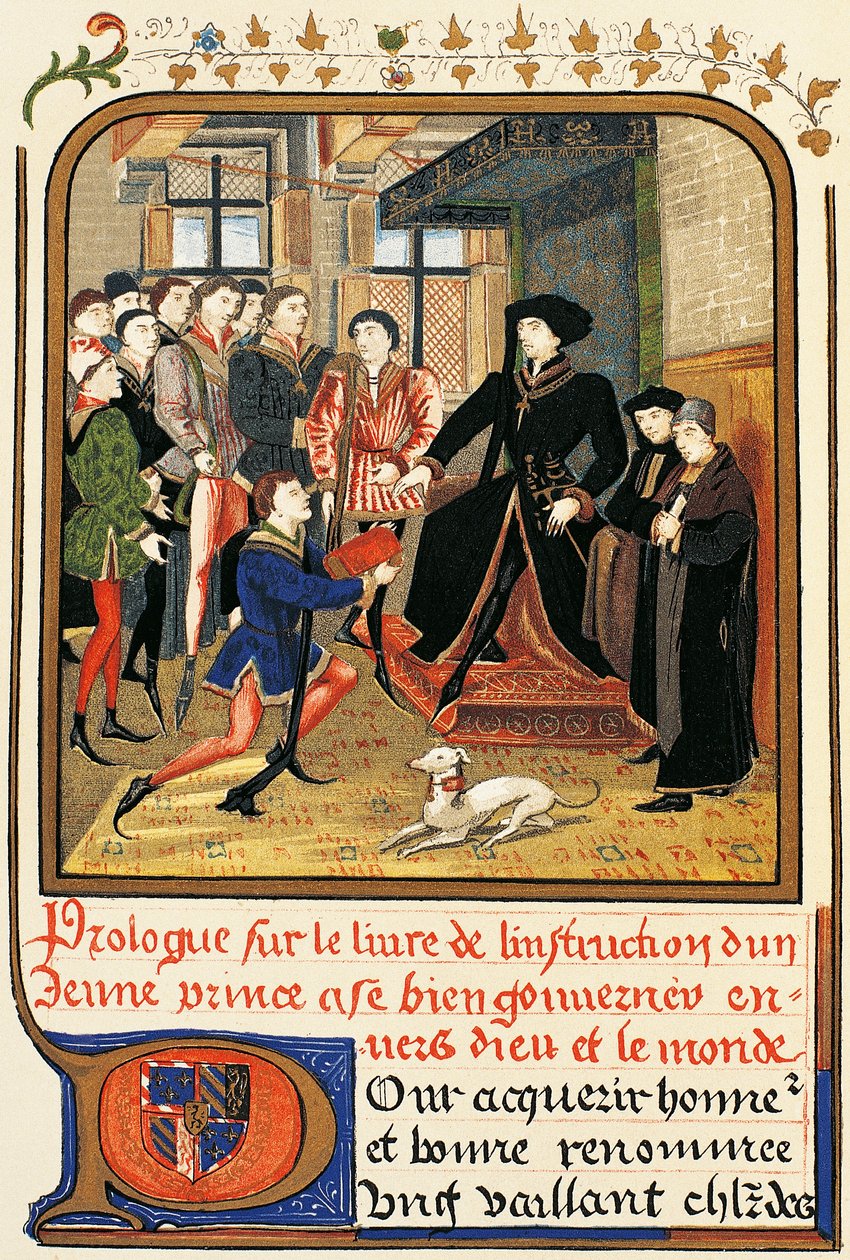 Prologue sur le liure de linstruction dun
Jenne prince a se bien gouuerner en=
uers dieu et le monde
POur acquerir honne²
et bonne renommee
Vng vaillant chlr̃ des